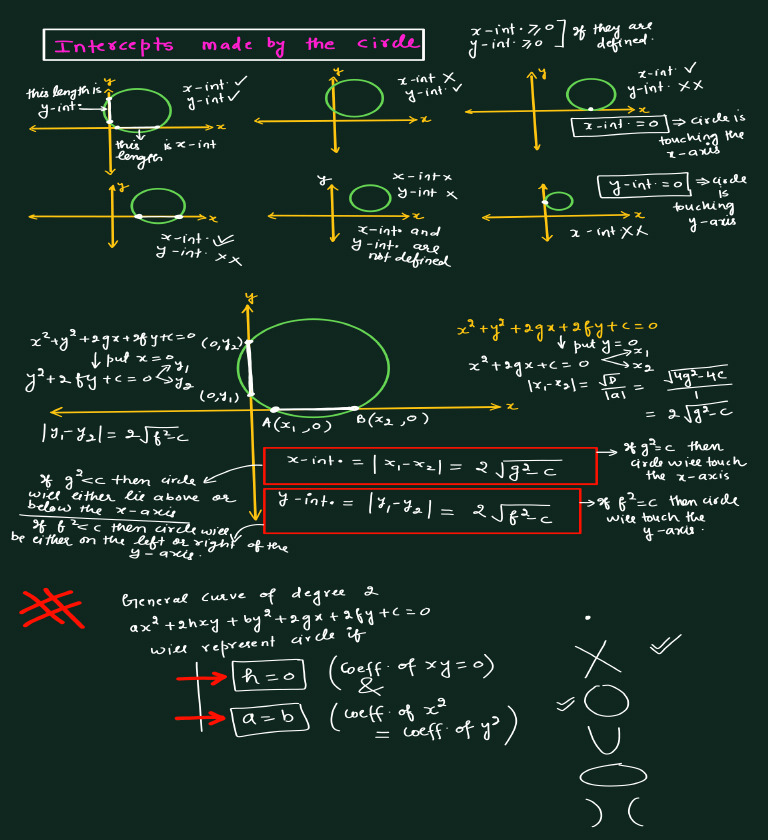 Intercepts made by the circle
x-int. ⩾0
y-int. ⩾0
if they are
defined.
this length is
y-int.
y
x-int ✓
y-int ✓
x
this length is x-int
y
x-int X
y-int. ✓
x
y
x-int. ✓
y-int. XX
x
x-int. = 0 ⇒ circle is
touching the
x-axis
y
x
x-int. ✓
y-int. XX
y
x-int x
y-int x
x
x-int. and
y-int. are
not defined
y-int. = 0 ⇒ circle
is
touching
y-axis
x
x-int. XX
x²+y²+2gx+2fy+c=0
↓ put x=0
y²+2fy+c=0
y₁
y₂
|y₁-y₂| = 2√f²-c
y
(0,y₂)
(0,y₁)
A(x₁,0)
B(x₂,0)
x
x²+y²+2gx+2fy+c=0
↓ put y=0
x²+2gx+c=0
x₁
x₂
|x₁-x₂| = √D/|a| = √4g²-4c/1
= 2√g²-c
x-int. = |x₁-x₂| = 2√g²-c
→ If g²=c then
circle will touch
the x-axis
If g²<c then circle
will either lie above or
below the x-axis
y-int. = |y₁-y₂| = 2√f²-c
→ If f²=c then circle
will touch the
y-axis.
If f²<c then circle will
be either on the left or right of the
y-axis.
General curve of degree 2
ax²+2hxy+by²+2gx+2fy+c=0
will represent circle if
h=0 (coeff. of xy=0)
&
a=b (coeff. of x²
= coeff. of y²)